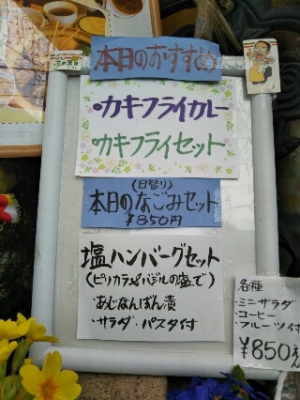 本日のおすすめ
・カキフライカレー
カキフライセット
(日替り)
本日のなごみセット
¥850円
塩ハンバーグセット
(ピリカラ&バジルの塩で)
・あじなんばん漬
・サラダ・パスタ付
各種
・ミニサラダ
・コーヒー
・フルーツ付
¥850えん